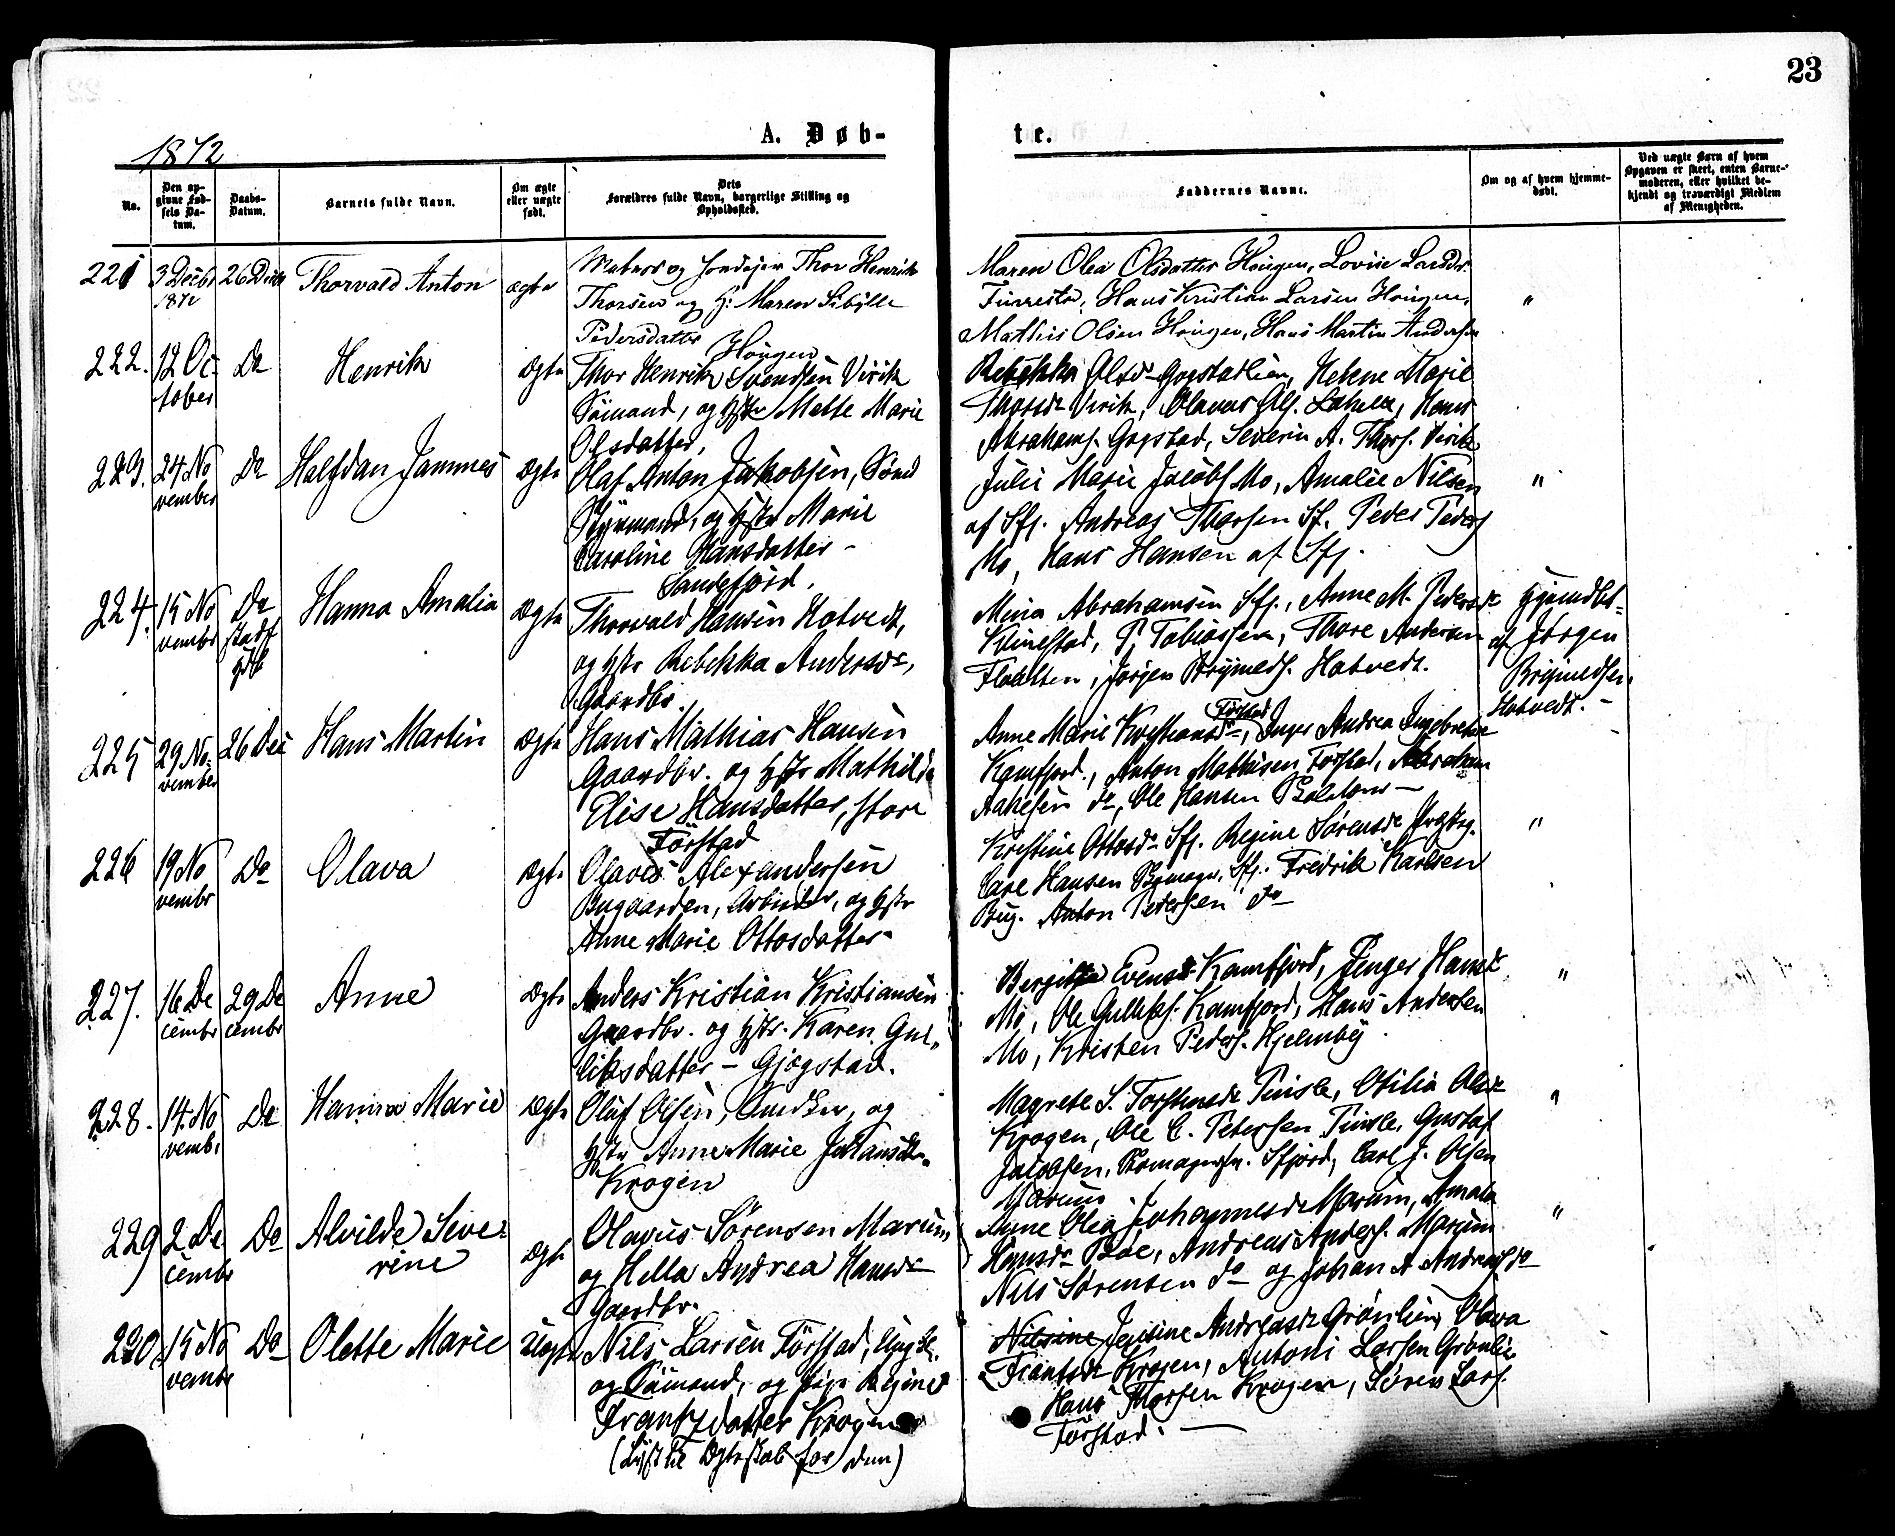 23
1872
A. Døb-
te.
No.
Den op-
givne Fød-
sels Da-
tum.
Daabs-
Datum.
Barnets fulde Navn.
Om ægte
eller uægte
født.
Dets
Forældres fulde Navn, borgerlige Stilling og
Opholdssted.
Faddernes Navne.
Om og af hvem hjemme-
døbt.
Ved uægte Børn af hvem
Opgaven er skeet, enten Barne-
moderen, eller hvilket be-
kjendt og troværdigt Medlem
af Menigheden.
221
3 Decbr
1872
26 Decb
Thorvald Anton
ægte
Matros og Thor Henrik
Thorsen og H: Maren Sibylle
Pedersdatter
Hougen
Maren Olea Olsdatter Hougen, Lovise Larsdr
Furrestad, Hans Kristian Larsen Hougen,
Mathis Olsen Hougen, Hans Martin Andersen
"
222.
12 Oc-
tober
Do
Henrik
Ægte
Thor Henrik Svendsen Virik
Sømand, og Hstr Mette Marie
Olsdatter,
Rebekka Olsdr Gogstadlien, Helene Marie
Thorsdr Virik, Olavus Ols. Lahelle, Hans
Abrahams. Gogstad, Severin A. Thors. Virik
223.
24 No
vember
Do
Halfdan Jammes
Ægte
Olaf Anton Jakobsen,
Styrmand, og Hstr Marie
Caroline Hansdatter -
Sandefjord.
Julie Marie Jacobs Mo, Amalie Nilsen
af Sfj. Andreas Thorsen Sf. Peder Peders
Mo, Hans Hansen af Sfj.
"
224.
15 No
vembr
Do
Hanna Amalia
Ægte
Thorvald Hansen Hotvedt,
og Hstr Rebekka Andersdr,
Gaardbr.
Mina Abrahamsen Sfj., Anne M. Pedersdr
Kvinestad, P. Tobiassen, Thore Andersen
Floatten, Jørgen Brymeds. Hotvedt.
Hjemdbt-
af Jørgen
Brymedsen
Hotvedt. -
225
29 No-
vember
26 Dec
Hans Martin
Ægte
Hans Mathias Hansen
Gaardbr. og Hstr Mathilde
Elise Hansdatter, store
Førstad
Anne Marie Kristiansdr Førstad, Inger Andrea Ingebretsdr
Kamfjord., Anton Mathisen Forstad, Abraham
Aakesen do, Ole Hansen
226
19 No
vembr
Do
Olava
Ægte
Olaves Alexandersen
Bugaarden, Arbeider, og Hstr
Anne Marie Ottosdatter-
Kristine Ottosdr Sfj. Regine Sørensdr
Carl Hansen Sfj. Fredrik Karlsen
Bug. Anton Pedersen do
"
227.
16 De
cembr
29 De
cembr
Anne
Ægte
Anders Kristian Kristiansen
Gaardbr. og Hstr. Karen Gul-
liksdatter - Gjøgstad.
Bergitta Evensd Kamfjord, Hansdr
Mo, Ole Gulliks. Kamfjord, Hans Andersen
Mo, Kristen Peders. Hjelmby
"
228.
14 No
vembr
Do
Hanna Marie
Ægte
Oluf Olsen, og
Hstr Anne Marie Johansdtr
Krogen
Magrete S. Torstensdr Pinsle, Otilia Olsdr
Krogen, Ole C. Petersen Pinsle, Gustaf
Jacobsen, Sfjord, Carl J. Olsen
Marum
"
229
2 De
cembr
Do
Alvilde Seve-
rine
Ægte
Olavus Sørensen Marum,
og Hella Andrea Hansdr
Gaardbr.
Anne Olea Johannesdr Marum, Amala
Hansdr Bøe, Andreas Anders. Marum
Nils Sørensen do og Johan A Andreass do
"
230.
15 No
vembr
Do
Olette Marie
Uægte
Nils Larsen Førstad, Ungk.
og Sømand, og Pige Regine
Frantzdatter Krogen
(Lyst til Ægteskab for dem)
Nilsine Jensine Andreasdr Grønlien, Olava
Frantsdr Krogen, Antoni Larsen Grønlie
Hans Thorsen Krogen, Søren Lars.
Førstad. -